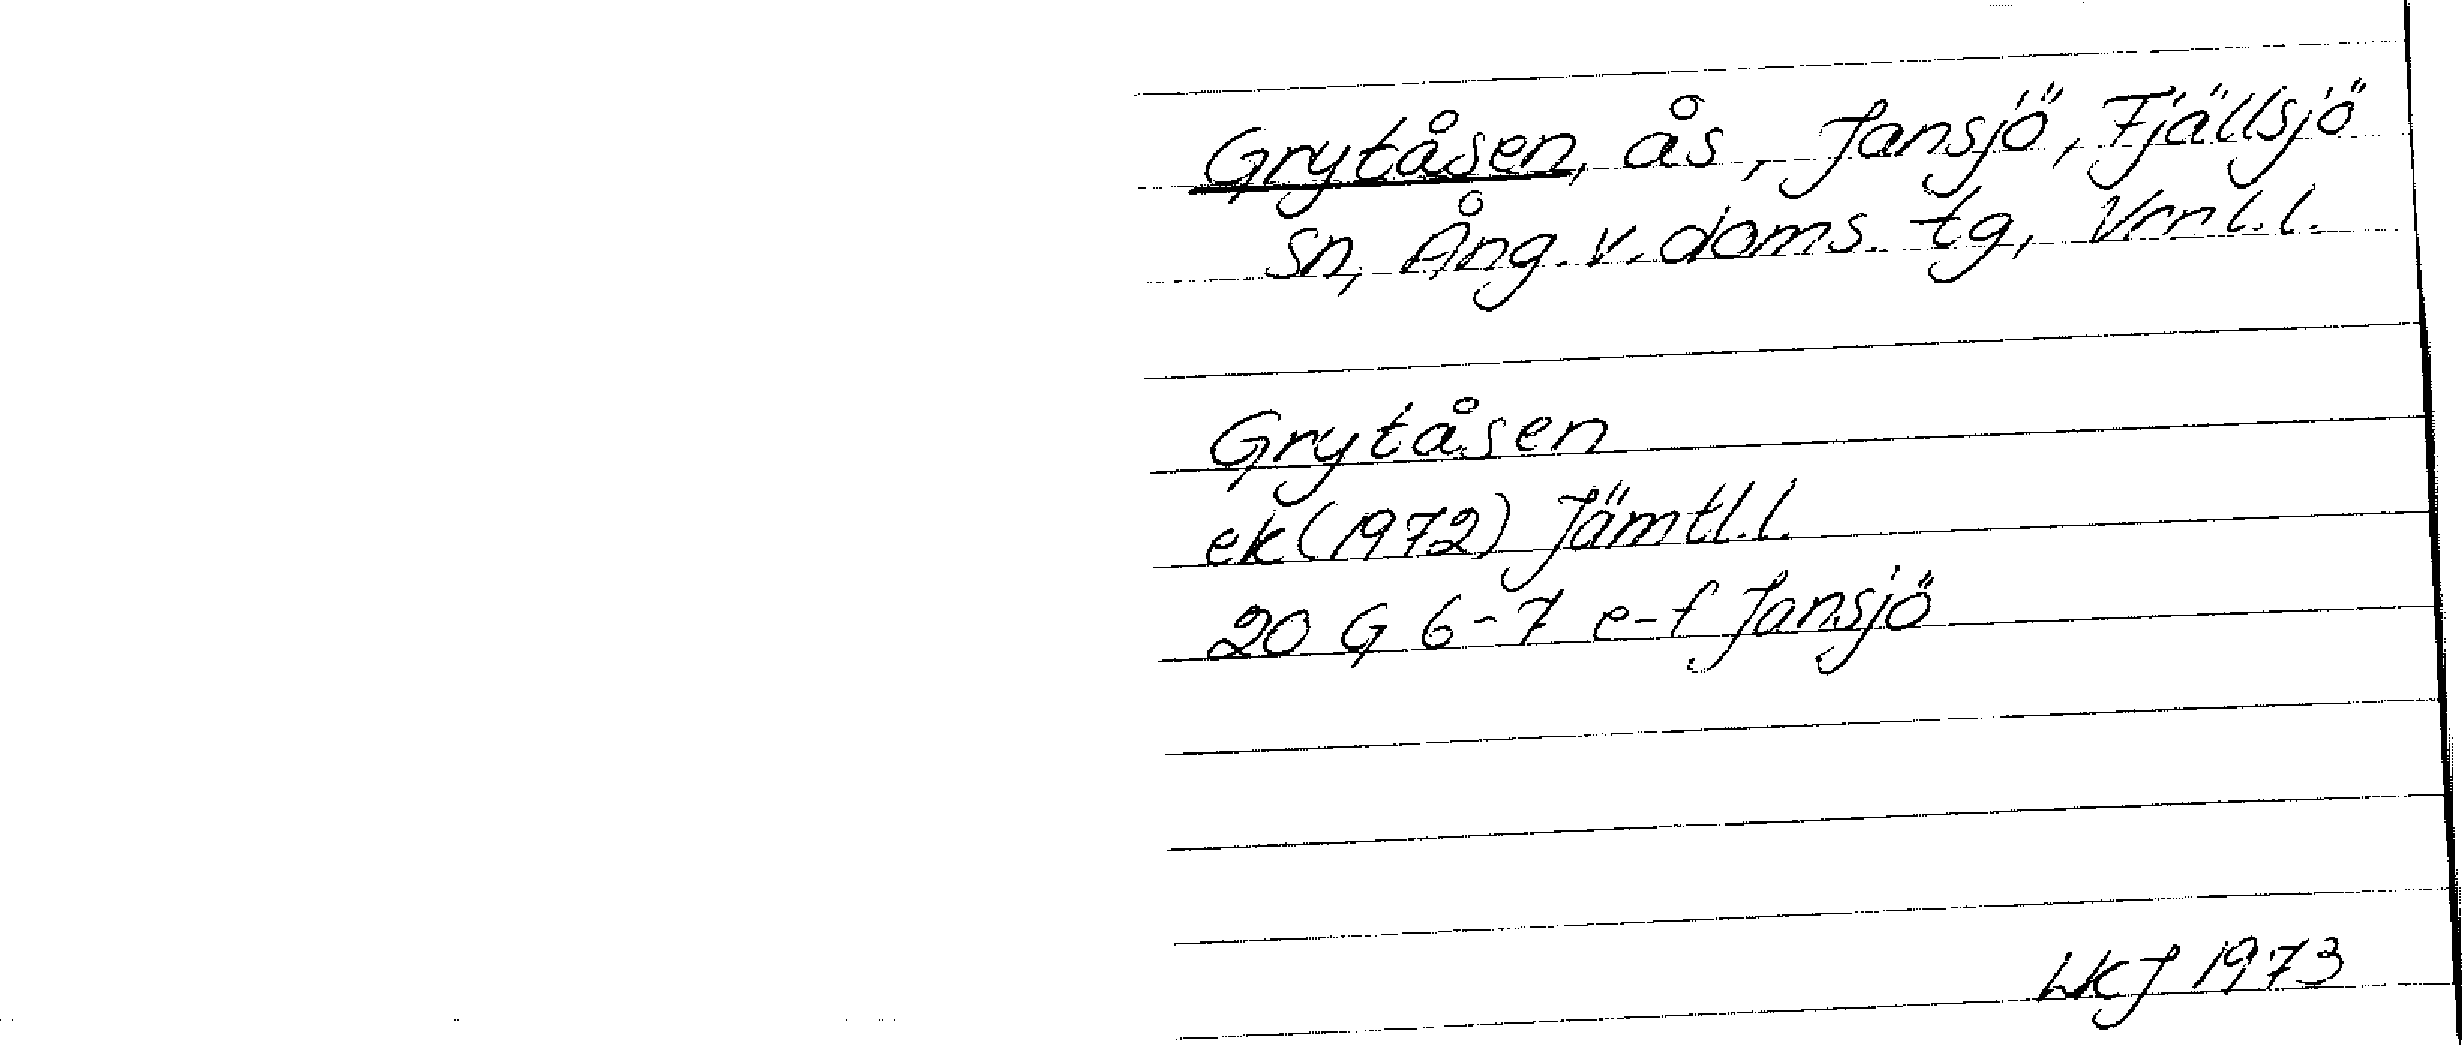 Grytåsen, ås, Jansjö, Fjällsjö
sn, Ång. v. doms. tg, Vrnl.l.
Grytåsen
ek (1972) Jämtl.l.
20 G 6-7 e-f Jansjö
LKJ 1973